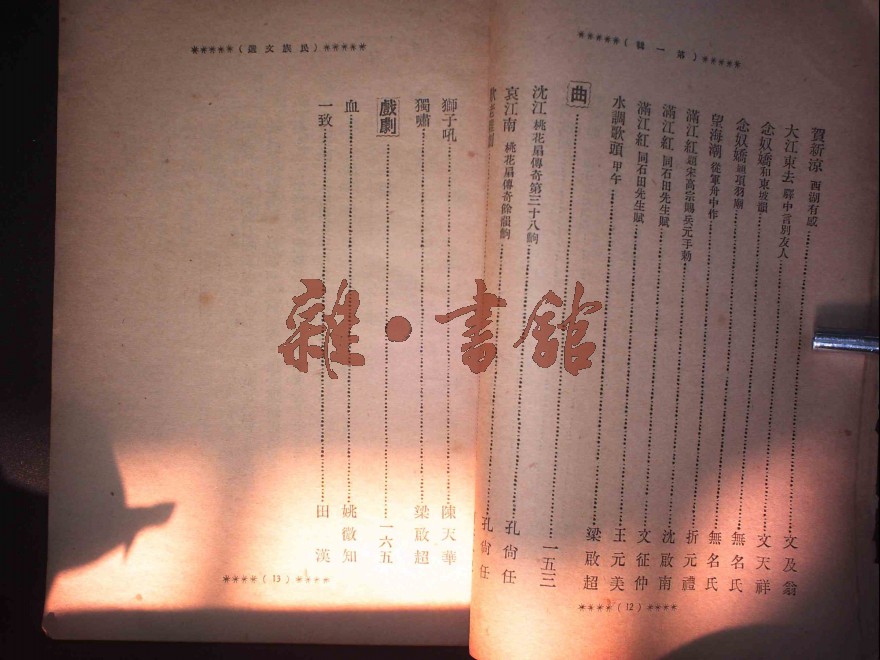 ＊＊＊＊＊（第一輯）＊＊＊＊＊
賀新涼 西湖有感……文及翁
大江東去 驛中言別友人……文天祥
念奴嬌 和東坡韻……無名氏
念奴嬌 題項羽廟……無名氏
望海潮 從軍舟中作……折元禮
滿江紅 題宋高宗賜岳元手勅……沈啟南
滿江紅 同石田先生賦……文征仲
滿江紅 同石田先生賦……王元美
水調歌頭 甲午……梁啟超
曲……一五三
沈江 桃花扇傳奇第三十八齣……孔尙任
哀江南 桃花扇傳奇餘韻齣……孔尙任
＊＊＊＊（12）＊＊＊＊
＊＊＊＊＊（民族文選）＊＊＊＊＊
獅子吼……陳天華
獨嘯……梁啟超
戲劇……一六五
血……姚徵知
一致……田漢
＊＊＊＊（13）＊＊＊＊
雜·書館